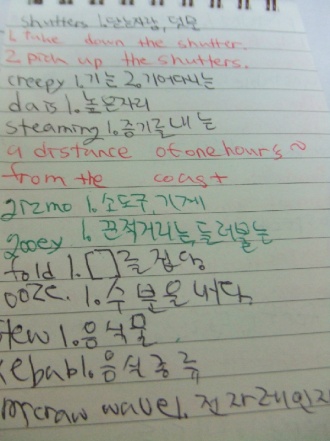 shutters 1.닫는사람, 덧문
1. Take down the shutter.
2. pick up the shutters.
creepy 1.기는 2.기어다니는
dais 1.높은자리
steaming 1.증기를내는
a distance of one hours ~
from the coast
gizmo 1.소도구, 기계
gooey 1. 끈적거리는, 들러붙는
fold 1.[ ]를 접다
ooze. 1.수분을 내다
stew 1.음식물
kebab1.음식종류
mcraw wave1. 전자레인지